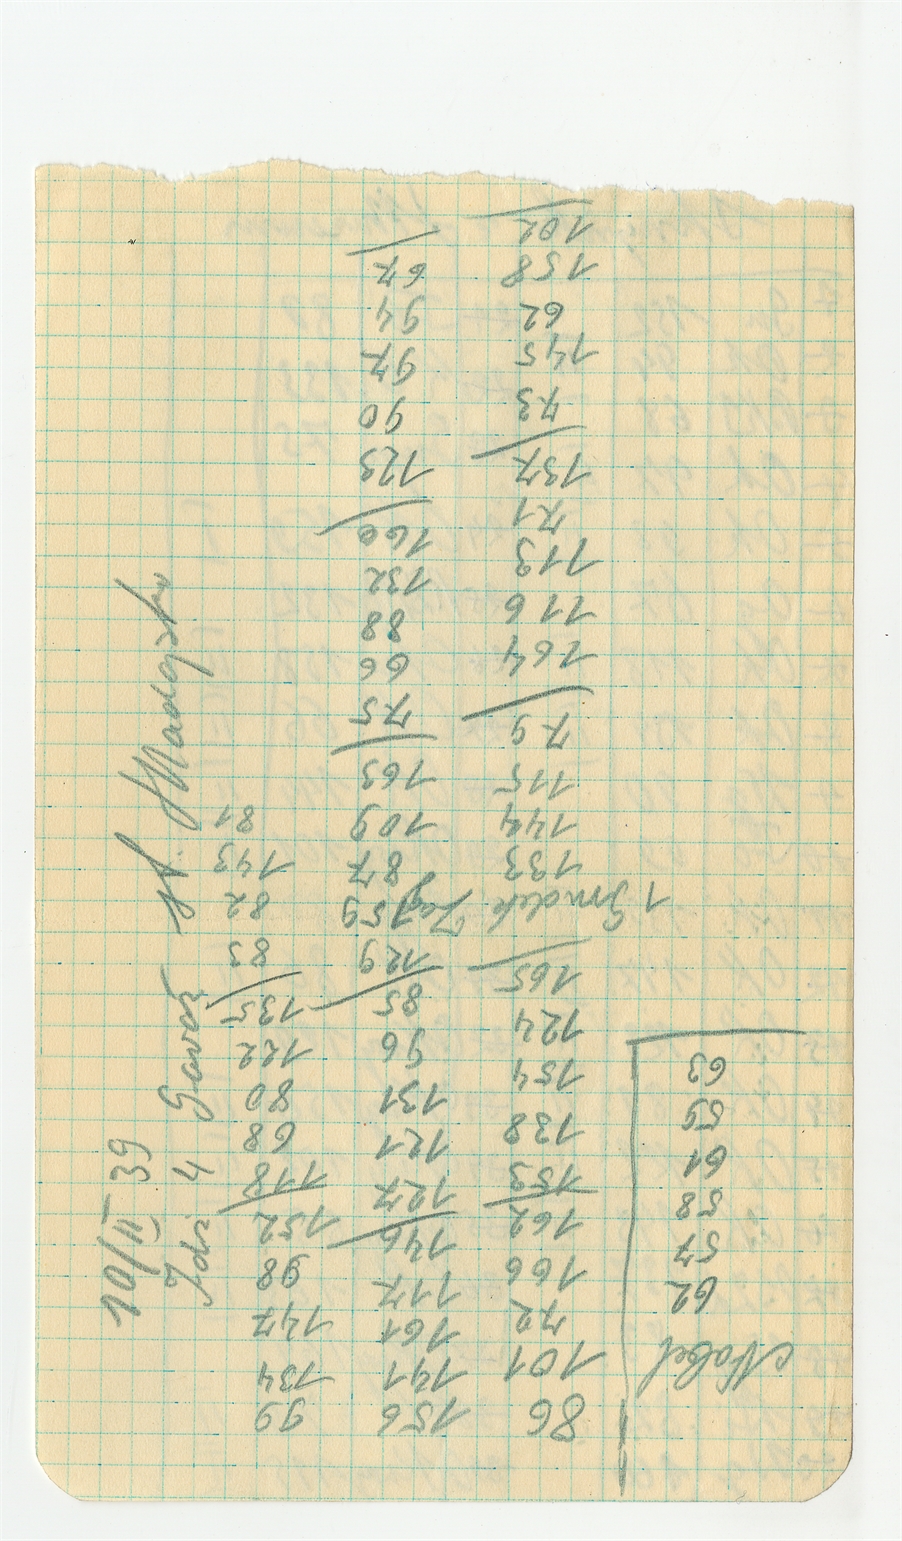 10/II 39
4
Nobel
62
57
58
61
59
63
86
101
72
166
162
153
138
154
124
165
1
133
144
115
79
164
116
113
71
137
73
145
62
158
102
156
141
161
117
146
127
121
131
96
85
129
159
87
109
163
75
66
88
132
160
123
90
97
94
67
99
134
147
98
152
118
68
80
122
135
83
82
143
81